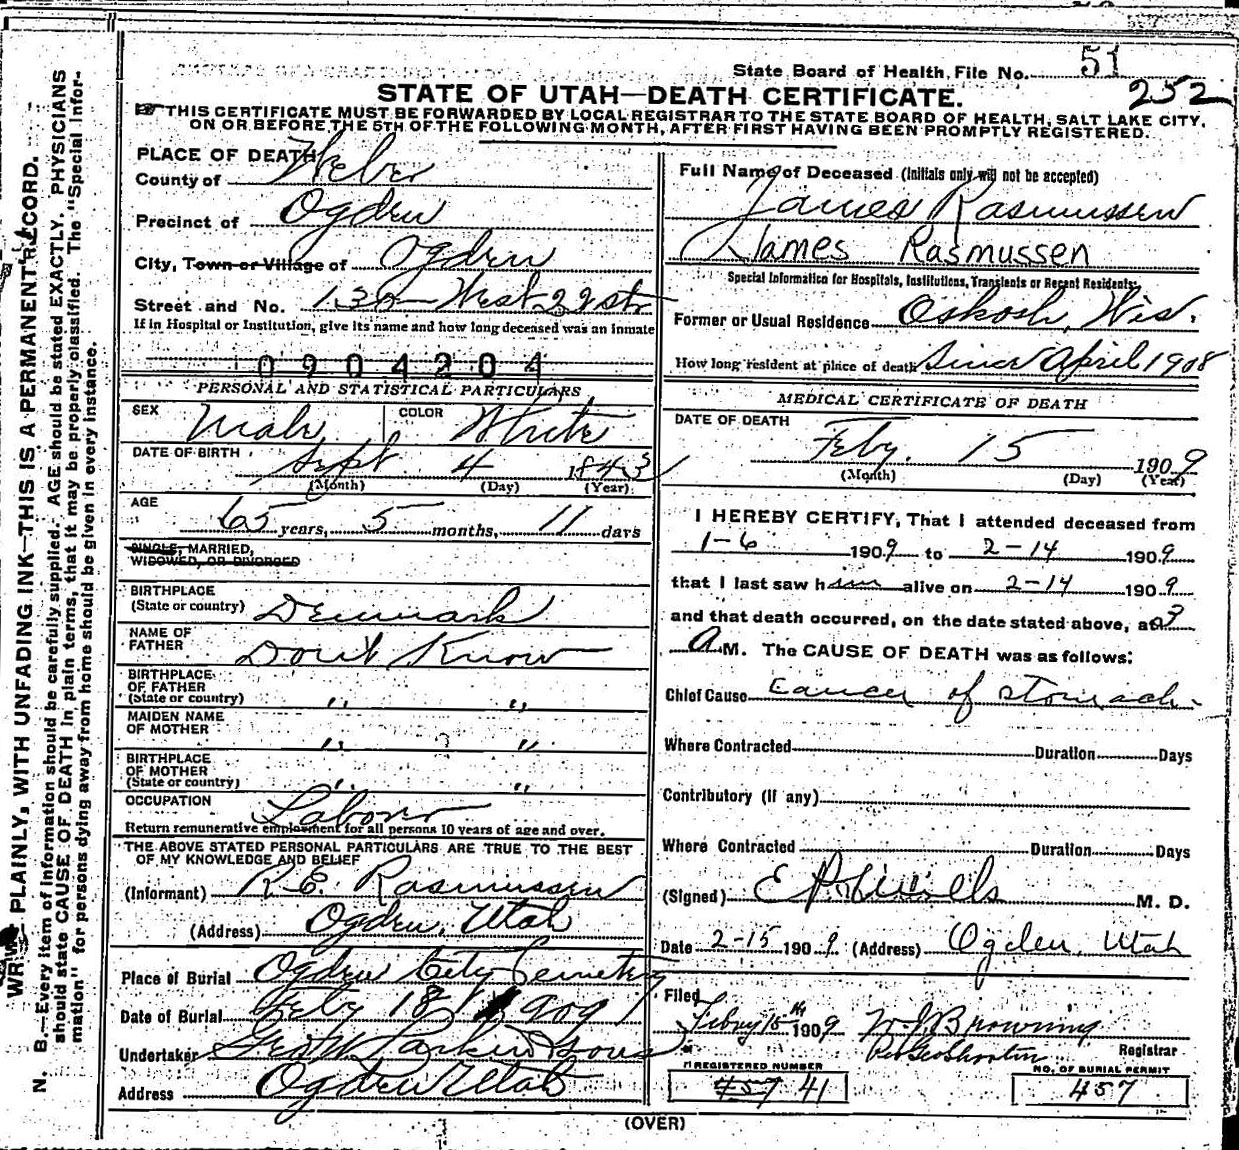 State Board of Health, File No. 51
252
STATE OF UTAH—DEATH CERTIFICATE.
THIS CERTIFICATE MUST BE FORWARDED BY LOCAL REGISTRAR TO THE STATE BOARD OF HEALTH, SALT LAKE CITY,
ON OR BEFORE THE 5TH OF THE FOLLOWING MONTH, AFTER FIRST HAVING BEEN PROMPTLY REGISTERED.
PLACE OF DEATH
County of Weber
Precinct of Ogden
City, Town or Village of Ogden
Street and No. 130 West 22 st
If in Hospital or Institution, give its name and how long deceased was an inmate
0904204
PERSONAL AND STATISTICAL PARTICULARS
SEX Male COLOR White
DATE OF BIRTH Sept. 4 1843
(Month) (Day) (Year)
AGE
65 years, 5 months, 11 days
SINGLE, MARRIED,
WIDOWED, OR DIVORCED
BIRTHPLACE
(State or country) Denmark
NAME OF
FATHER Don't Know
BIRTHPLACE
OF FATHER
(State or country) " "
MAIDEN NAME
OF MOTHER " "
BIRTHPLACE
OF MOTHER
(State or country) " "
OCCUPATION Laborer
Return remunerative employment for all persons 10 years of age and over.
THE ABOVE STATED PERSONAL PARTICULARS ARE TRUE TO THE BEST
OF MY KNOWLEDGE AND BELIEF
(Informant) R. E. Rasmussen
(Address) Ogden, Utah
Place of Burial Ogden City Cemetery
Date of Burial Feby 18 1909
Undertaker Geo W Larkin & Sons
Address Ogden Utah
Full Name of Deceased (Initials only will not be accepted)
James Rasmussen
James Rasmussen
Special Information for Hospitals, Institutions, Transients or Recent Residents:
Former or Usual Residence Oskosh, Wis.
How long resident at place of death Since April 1908
MEDICAL CERTIFICATE OF DEATH
DATE OF DEATH
Feby. 15 1909
(Month) (Day) (Year)
I HEREBY CERTIFY, That I attended deceased from
1-6 1909 to 2-14 1909
that I last saw him alive on 2-14 1909
and that death occurred, on the date stated above, at 3
A M. The CAUSE OF DEATH was as follows:
Chief Cause cancer of stomach
Where Contracted Duration Days
Contributory (if any)
Where Contracted Duration Days
(Signed) E. P. Mills M. D.
Date 2-15 1909. (Address) Ogden, Utah
Filed
Febuy 15th 1909 W. J. Browning
Registrar
REGISTERED NUMBER
457 41
NO. OF BURIAL PERMIT
457
(OVER)
WRITE PLAINLY, WITH UNFADING INK—THIS IS A PERMANENT RECORD.
N. B.—Every item of information should be carefully supplied. AGE should be stated EXACTLY. PHYSICIANS
should state CAUSE OF DEATH in plain terms, that it may be properly classified. The "Special Infor-
mation" for persons dying away from home should be given in every instance.